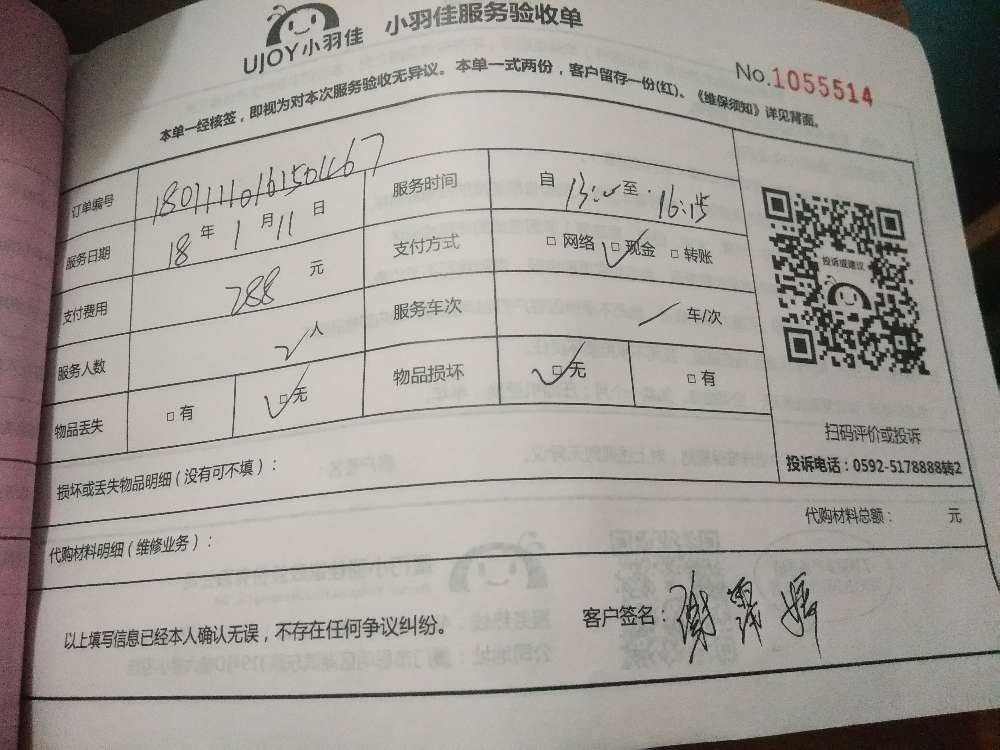 UJOY小羽佳 小羽佳服务验收单
No.1055514
本单一经核签，即视为对本次服务验收无异议。本单一式两份，客户留存一份(红)。《维保须知》详见背面。
订单编号 服务时间 自 13:00 至 16:15
服务日期 18 年 1 月 11 日 支付方式 □ 网络 □ 现金 □ 转账
支付费用 288 元 服务车次 车/次
服务人数 2 人 物品损坏 □ 无 □ 有
物品丢失 □ 有 □ 无
投诉或建议
扫码评价或投诉
投诉电话：0592-5178888转2
损坏或丢失物品明细（没有可不填）：
代购材料明细（维修业务）： 代购材料总额： 元
以上填写信息已经本人确认无误，不存在任何争议纠纷。 客户签名：谢